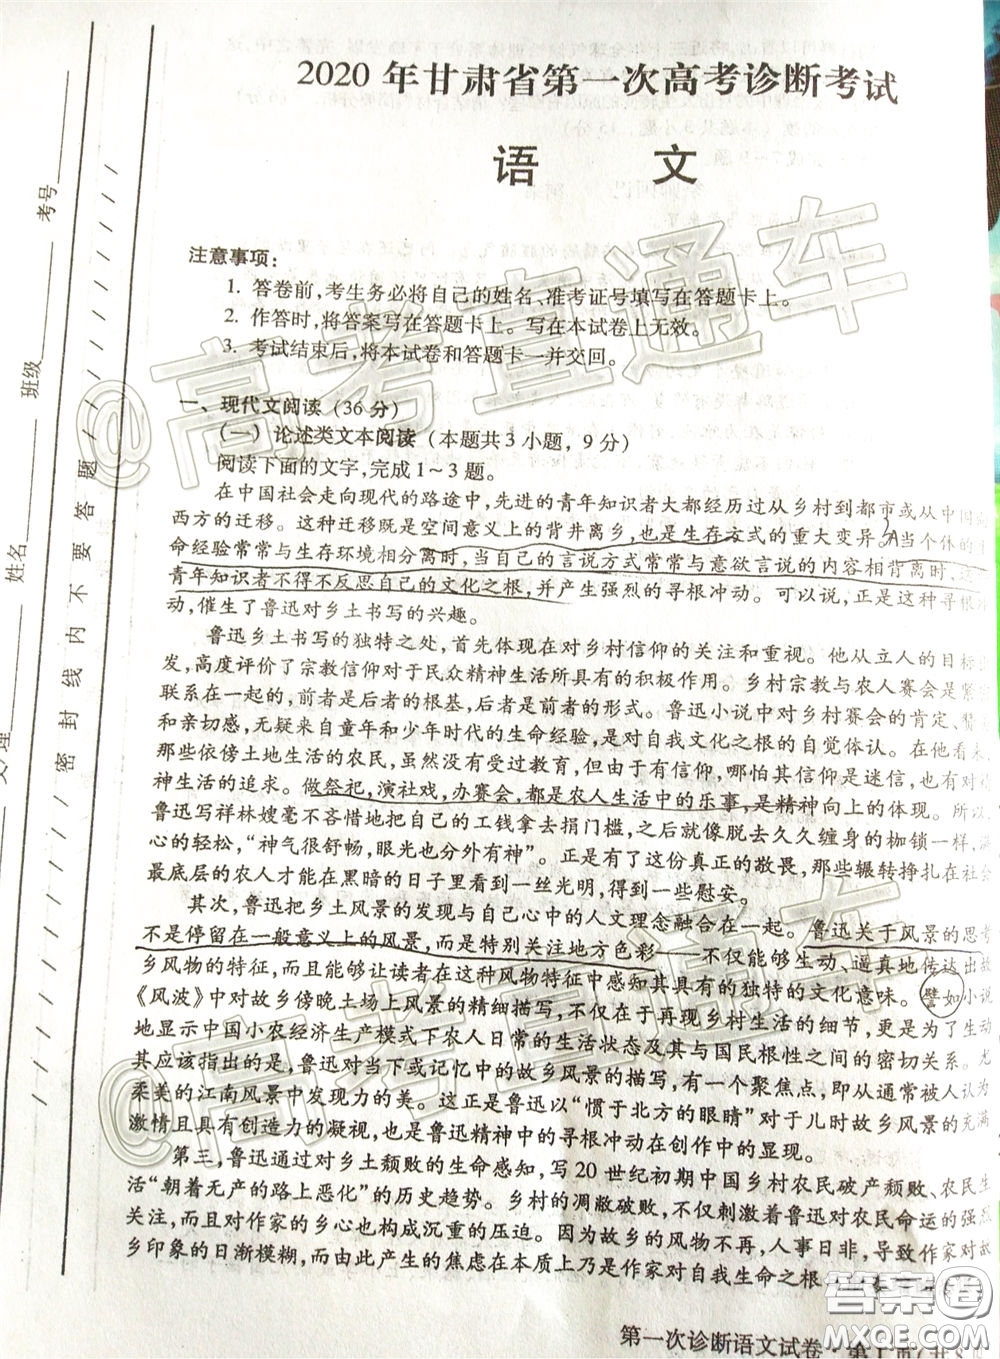 2020年甘肃省第一次高考诊断考试
语 文
注意事项:
1. 答卷前,考生务必将自己的姓名、准考证号填写在答题卡上。
2. 作答时,将答案写在答题卡上。写在本试卷上无效。
3. 考试结束后,将本试卷和答题卡一并交回。
一、现代文阅读(36分)
(一)论述类文本阅读(本题共3小题,9分)
阅读下面的文字,完成1~3题。
在中国社会走向现代的路途中,先进的青年知识者大都经历过从乡村到都市或从中国
西方的迁移。这种迁移既是空间意义上的背井离乡,也是生存方式的重大变异。当个体的
命经验常常与生存环境相分离时,当自己的言说方式常常与意欲言说的内容相背离时,这
青年知识者不得不反思自己的文化之根,并产生强烈的寻根冲动。可以说,正是这种寻根
动,催生了鲁迅对乡土书写的兴趣。
鲁迅乡土书写的独特之处,首先体现在对乡村信仰的关注和重视。他从立人的目标
发,高度评价了宗教信仰对于民众精神生活所具有的积极作用。乡村宗教与农人赛会是
联系在一起的,前者是后者的根基,后者是前者的形式。鲁迅小说中对乡村赛会的肯定、
和亲切感,无疑来自童年和少年时代的生命经验,是对自我文化之根的自觉体认。在他看
那些依傍土地生活的农民,虽然没有受过教育,但由于有信仰,哪怕其信仰是迷信,也有对
神生活的追求。做祭祀,演社戏,办赛会,都是农人生活中的乐事,是精神向上的体现。所以
鲁迅写祥林嫂毫不吝惜地把自己的工钱拿去捐门槛,之后就像脱去久久缠身的枷锁一样,
心的轻松,“神气很舒畅,眼光也分外有神”。正是有了这份真正的敬畏,那些辗转挣扎在社会
最底层的农人才能在黑暗的日子里看到一丝光明,得到一些慰安。
其次,鲁迅把乡土风景的发现与自己心中的人文理念融合在一起。鲁迅关于风景的思考
不是停留在一般意义上的风景,而是特别关注地方色彩——不仅能够生动、逼真地传达出故
乡风物的特征,而且能够让读者在这种风物特征中感知其具有的独特的文化意味。譬如小说
《风波》中对故乡傍晚土场上风景的精细描写,不仅在于再现乡村生活的细节,更是为了生动
地显示中国小农经济生产模式下农人日常的生活状态及其与国民根性之间的密切关系。尤
其应该指出的是,鲁迅对当下或记忆中的故乡风景的描写,有一个聚焦点,即从通常被人认为
柔美的江南风景中发现力的美。这正是鲁迅以“惯于北方的眼睛”对于儿时故乡风景的充满
激情且具有创造力的凝视,也是鲁迅精神中的寻根冲动在创作中的显现。
第三,鲁迅通过对乡土颓败的生命感知,写20世纪初期中国乡村农民破产颓败、农民生
活“朝着无产的路上恶化”的历史趋势。乡村的凋敝破败,不仅刺激着鲁迅对农民命运的强烈
关注,而且对作家的乡心也构成沉重的压迫。因为故乡的风物不再,人事日非,导致作家对故
乡印象的日渐模糊,而由此产生的焦虑在本质上乃是作家对自我生命之根
第一次诊断语文试卷·第1页(共8页
考号
班级
姓名
密封线内不要答题
@高考直通车
@高考直通车
答案卷
MXQE.COM